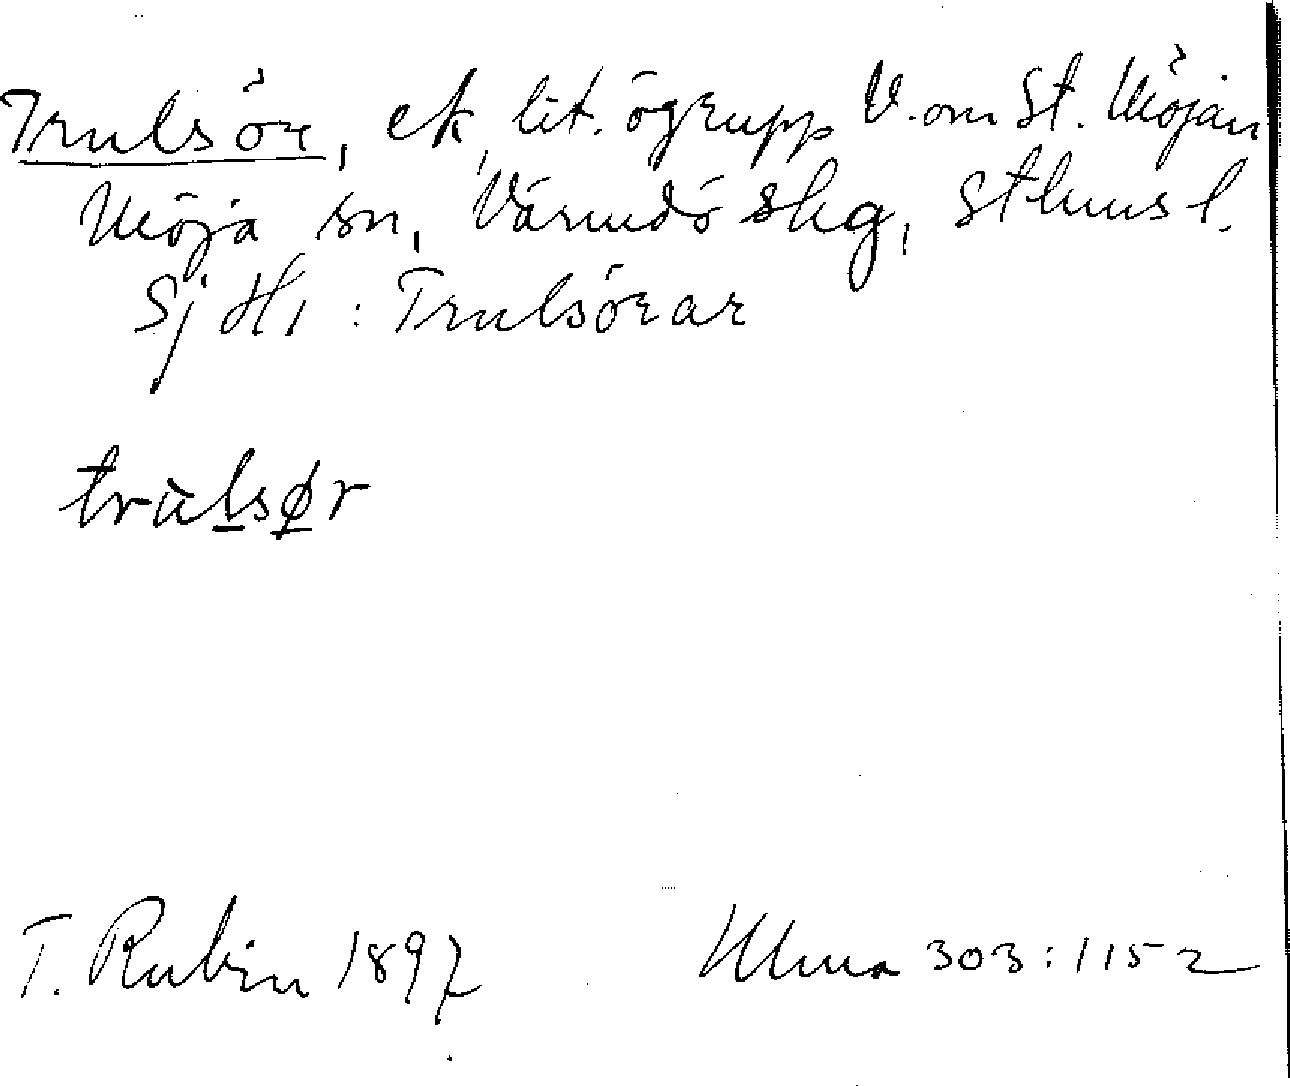 Trulsör, ek, lit. ögrupp V. om St. Möjan
Möja sn, Värmdö skg, Sthms l.
Sj H1 : Trulsörar
trùlsør
T. Rubin 1897
Ulma 303:1152